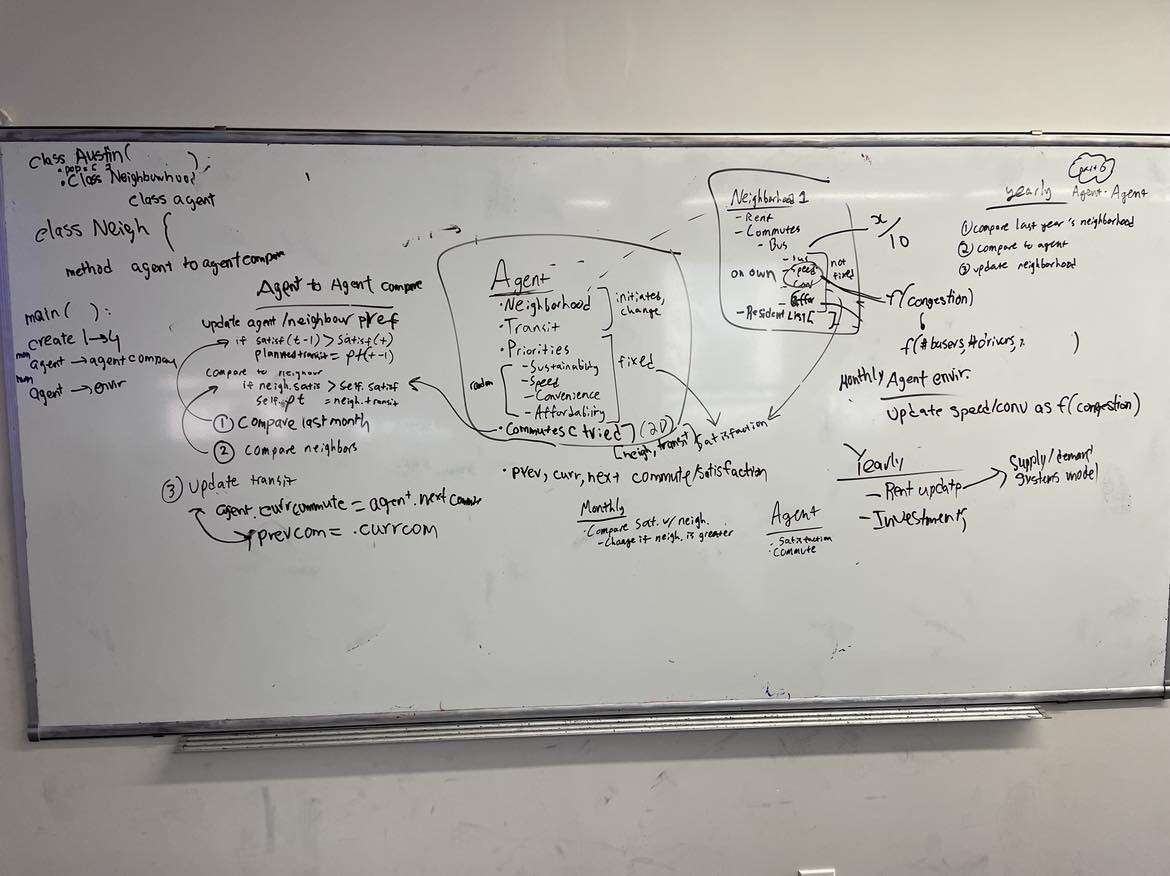 class Austin(          )
• pop =
• Class Neighbourhood
class agent
class Neigh {
method agent to agent compare
main( ):
create 1→4
agent → agent company
agent → envir
Agent to Agent compare
update agent/neighbour pref
if satisf(t-1) > satisf(t)
planned transit = pt(t-1)
compare to neighbour
if neigh.satis > self.satisf
self.pt = neigh.transit
① Compare last month
② compare neighbors
③ update transit
agent.currcommute = agent.next commute
prevcom = .currcom
Agent
• Neighborhood
• Transit
initiated,
change
• Priorities
- Sustainability
- Speed
- Convenience
- Affordability
random
fixed
• Commutes [tried] (2D)
[neigh, transit], satisfaction
• prev, curr, next commute/satisfaction
Monthly
• Compare Sat. w/ neigh.
- Change if neigh. is greater
Agent
- Satisfaction
• Commute
Neighborhood 1
- Rent
- Commutes
- Bus
- Sus
- Speed
- Conv
- Affor
on own
not
fixed
- Resident List [ ]
x/10
f(congestion)
f(#busers, #drivers,          )
part b
yearly Agent-Agent
① compare last year's neighborhood
② compare to agent
③ update neighborhood
Monthly Agent envir.
Update speed/conv as f(congestion)
Yearly
- Rent update
- Investments
Supply/demand
systems model